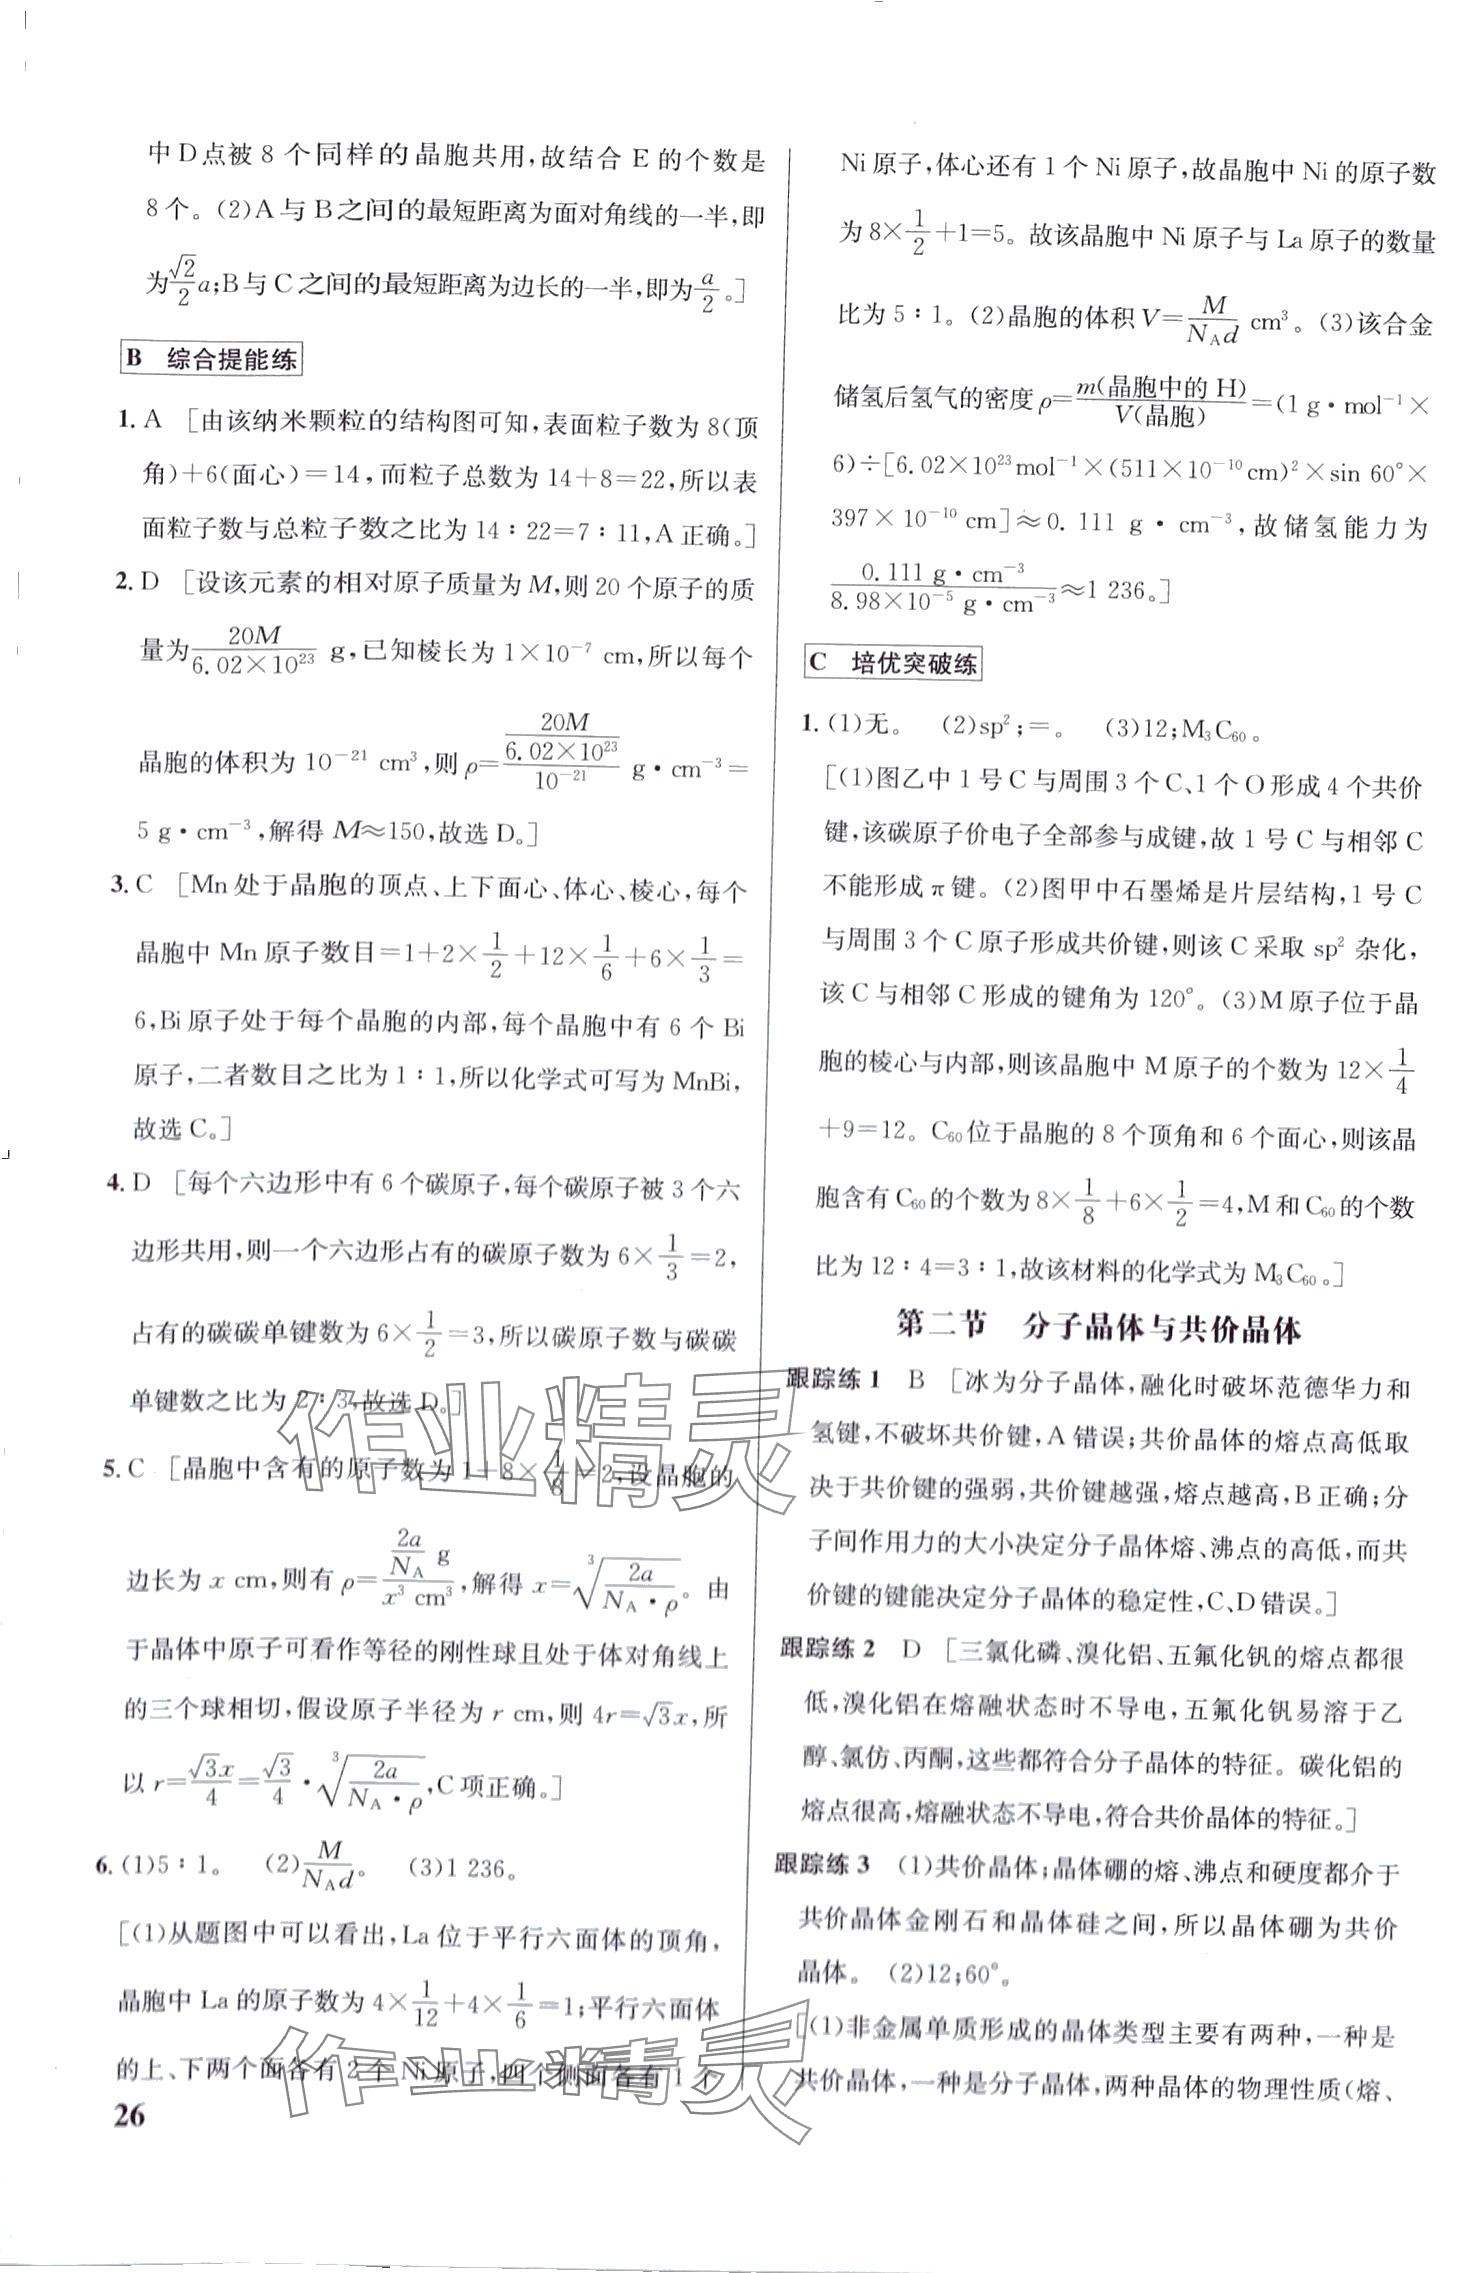 中D点被8个同样的晶胞共用,故结合E的个数是
8个。(2)A与B之间的最短距离为面对角线的一半,即
为√2/2 a;B与C之间的最短距离为边长的一半,即为a/2。]
B 综合提能练
1. A [由该纳米颗粒的结构图可知,表面粒子数为8(顶
角)+6(面心)=14,而粒子总数为14+8=22,所以表
面粒子数与总粒子数之比为14∶22=7∶11,A正确。]
2. D [设该元素的相对原子质量为M,则20个原子的质
量为20M/(6.02×10²³) g,已知棱长为1×10⁻⁷ cm,所以每个
晶胞的体积为10⁻²¹ cm³,则ρ=(20M/(6.02×10²³))/10⁻²¹ g·cm⁻³=
5 g·cm⁻³,解得M≈150,故选D。]
3. C [Mn处于晶胞的顶点、上下面心、体心、棱心,每个
晶胞中Mn原子数目=1+2×1/2+12×1/6+6×1/3=
6,Bi原子处于每个晶胞的内部,每个晶胞中有6个Bi
原子,二者数目之比为1∶1,所以化学式可写为MnBi,
故选C。]
4. D [每个六边形中有6个碳原子,每个碳原子被3个六
边形共用,则一个六边形占有的碳原子数为6×1/3=2,
占有的碳碳单键数为6×1/2=3,所以碳原子数与碳碳
单键数之比为2∶3,故选D。]
5. C [晶胞中含有的原子数为1+8×1/8=2,设晶胞的
边长为x cm,则有ρ=(2a/N_A g)/(x³ cm³),解得x=∛(2a/(N_A·ρ))。由
于晶体中原子可看作等径的刚性球且处于体对角线上
的三个球相切,假设原子半径为r cm,则4r=√3x,所
以r=√3x/4=√3/4·∛(2a/(N_A·ρ)),C项正确。]
6. (1)5∶1。 (2)M/(N_A d)。 (3)1 236。
[(1)从题图中可以看出,La位于平行六面体的顶角,
晶胞中La的原子数为4×1/12+4×1/6=1;平行六面体
的上、下两个面各有2个Ni原子,四个侧面各有1个
26
Ni原子,体心还有1个Ni原子,故晶胞中Ni的原子数
为8×1/2+1=5。故该晶胞中Ni原子与La原子的数量
比为5∶1。(2)晶胞的体积V=M/(N_A d) cm³。(3)该合金
储氢后氢气的密度ρ=m(晶胞中的H)/V(晶胞)=(1 g·mol⁻¹×
6)÷[6.02×10²³mol⁻¹×(511×10⁻¹⁰cm)²×sin 60°×
397×10⁻¹⁰ cm]≈0.111 g·cm⁻³,故储氢能力为
0.111 g·cm⁻³/(8.98×10⁻⁵ g·cm⁻³)≈1 236。]
C 培优突破练
1. (1)无。 (2)sp²;=。 (3)12;M₃C₆₀。
[(1)图乙中1号C与周围3个C、1个O形成4个共价
键,该碳原子价电子全部参与成键,故1号C与相邻C
不能形成π键。(2)图甲中石墨烯是片层结构,1号C
与周围3个C原子形成共价键,则该C采取sp²杂化,
该C与相邻C形成的键角为120°。(3)M原子位于晶
胞的棱心与内部,则该晶胞中M原子的个数为12×1/4
+9=12。C₆₀位于晶胞的8个顶角和6个面心,则该晶
胞含有C₆₀的个数为8×1/8+6×1/2=4,M和C₆₀的个数
比为12∶4=3∶1,故该材料的化学式为M₃C₆₀。]
第二节 分子晶体与共价晶体
跟踪练1 B [冰为分子晶体,融化时破坏范德华力和
氢键,不破坏共价键,A错误;共价晶体的熔点高低取
决于共价键的强弱,共价键越强,熔点越高,B正确;分
子间作用力的大小决定分子晶体熔、沸点的高低,而共
价键的键能决定分子晶体的稳定性,C、D错误。]
跟踪练2 D [三氯化磷、溴化铝、五氟化钒的熔点都很
低,溴化铝在熔融状态时不导电,五氟化钒易溶于乙
醇、氯仿、丙酮,这些都符合分子晶体的特征。碳化铝的
熔点很高,熔融状态不导电,符合共价晶体的特征。]
跟踪练3 (1)共价晶体;晶体硼的熔、沸点和硬度都介于
共价晶体金刚石和晶体硅之间,所以晶体硼为共价
晶体。 (2)12;60°。
[(1)非金属单质形成的晶体类型主要有两种,一种是
共价晶体,一种是分子晶体,两种晶体的物理性质(熔、
作业精灵
作业精灵